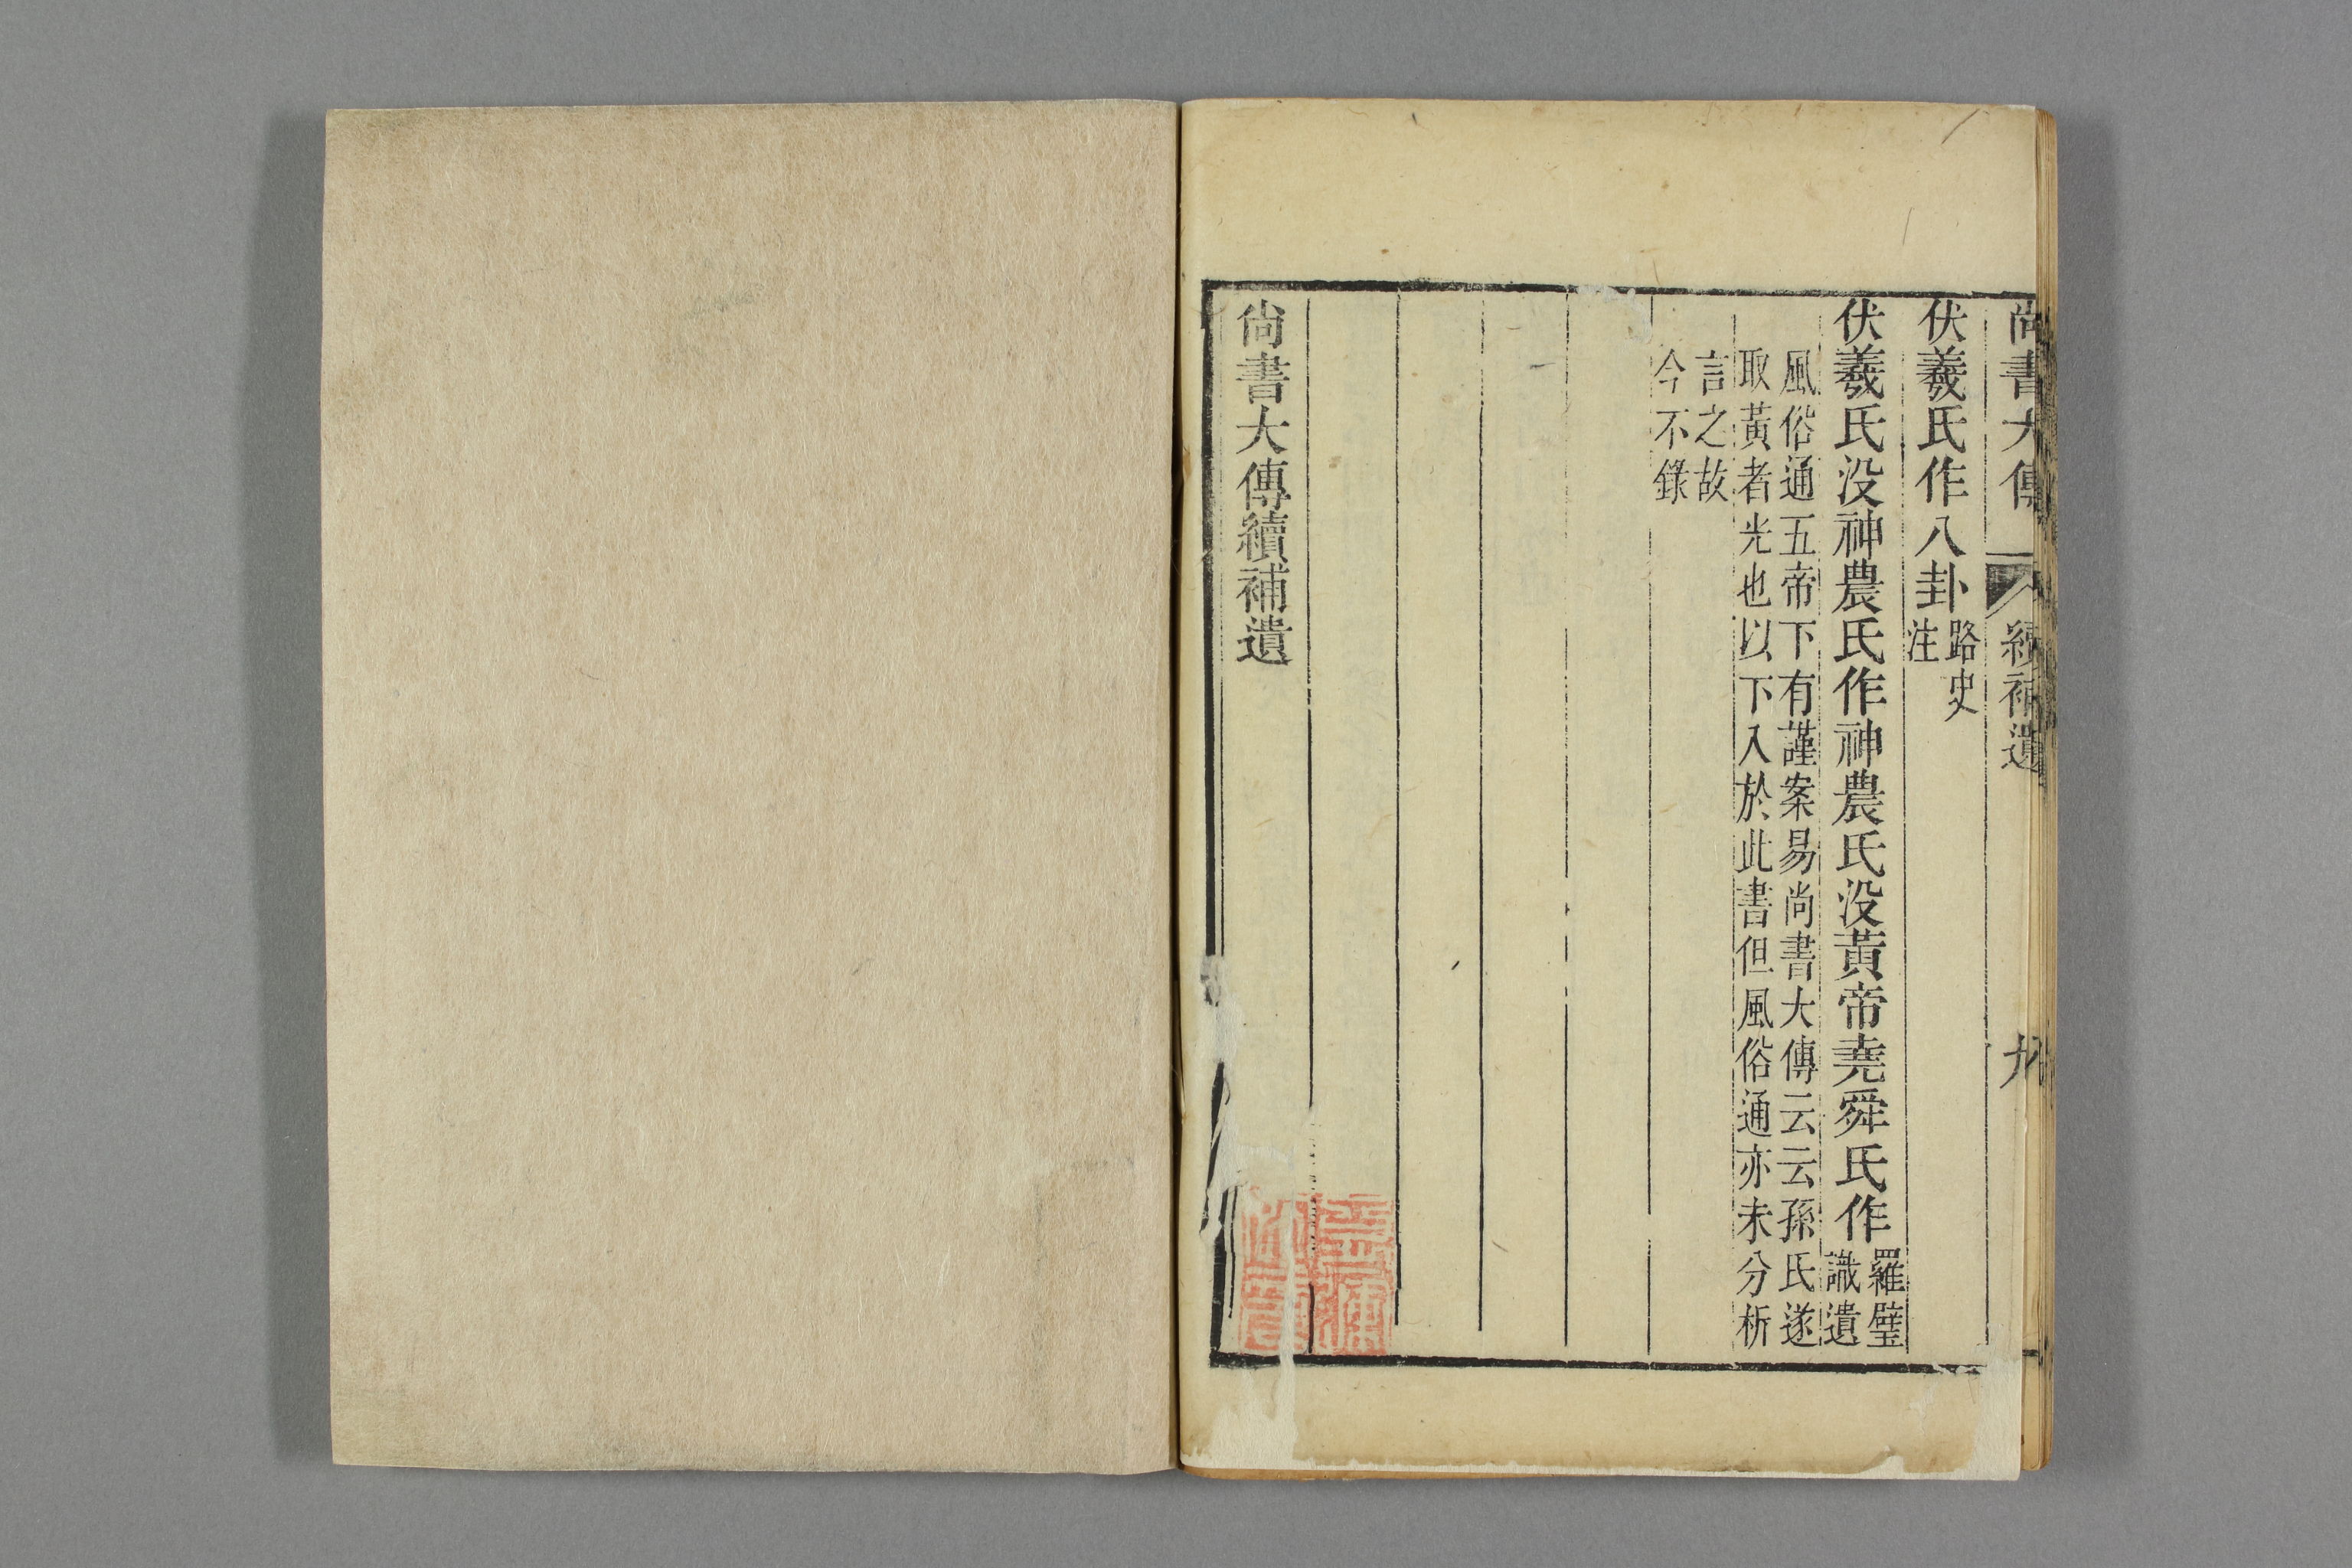 尚書大傳 續補遺 九
伏羲氏作八卦路史注
伏羲氏没神農氏作神農氏没黃帝堯舜氏作羅璧識遺
風俗通五帝下有謹案易尚書大傳云云孫氏遂
取黃者光也以下入於此書但風俗通亦未分析
言之故
今不錄
尚書大傳續補遺